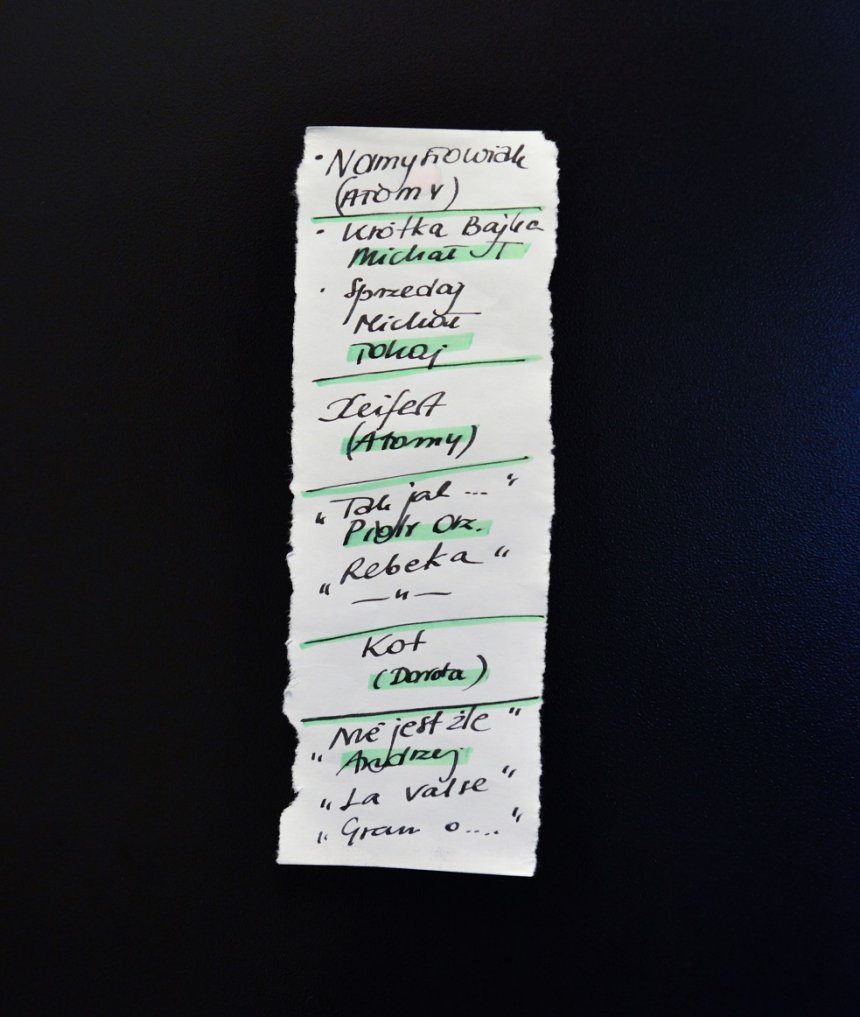 • Namysłowiak
(Atomy)
• Krótka Bajka
Michał JT
• Sprzedaj
Michał
Tokaj
Xeifert
(Atomy)
„Tak jak ..."
Piotr Orz.
„Rebeka"
— " —
Kot
(Dorota)
„Nie jest źle"
Andrzej
„La valse"
„Gram o ...."